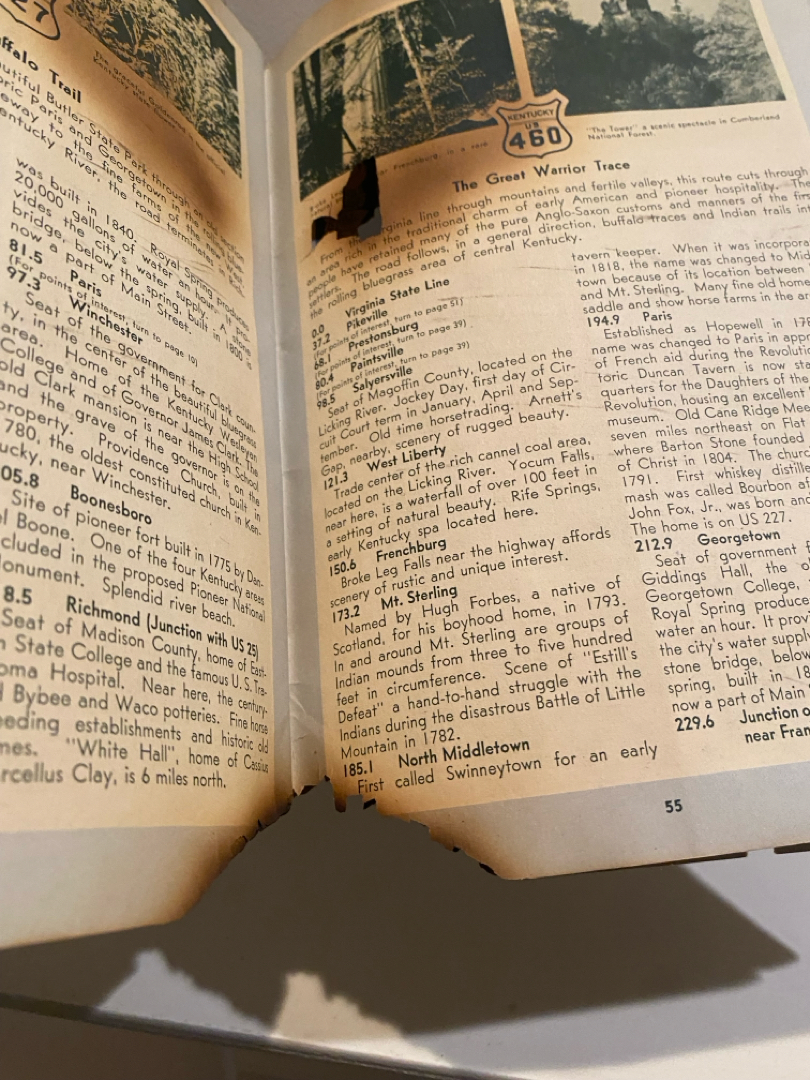 27
ffalo Trail
autiful Butler State Park through an old
oric Paris and Georgetown in the rolling
eway to the fine farms of the blue-
entucky River, the road terminates in West
was built in 1840. Royal Spring produces
20,000 gallons of water an hour. It pro-
vides the city's water supply. A stone
bridge, below the spring, built in 1800 is
now a part of Main Street.
81.5 Paris
(For points of interest, turn to page 10)
97.3 Winchester
Seat of the government for Clark coun-
ty, in the center of the beautiful bluegrass
area. Home of the Kentucky Wesleyan
College and of Governor James Clark. The
old Clark mansion is near the High School
and the grave of the governor is on the
property. Providence Church, built in
780, the oldest constituted church in Ken-
ucky, near Winchester.
05.8 Boonesboro
Site of pioneer fort built in 1775 by Dan-
l Boone. One of the four Kentucky areas
cluded in the proposed Pioneer National
onument. Splendid river beach.
8.5 Richmond (Junction with US 25)
Seat of Madison County, home of East-
n State College and the famous U. S. Tra-
oma Hospital. Near here, the century-
d Bybee and Waco potteries. Fine horse
eeding establishments and historic old
mes. "White Hall", home of Cassius
rcellus Clay, is 6 miles north.
KENTUCKY
US
460
"The Tower" a scenic spectacle in Cumberland
National Forest.
The Great Warrior Trace
From the Virginia line through mountains and fertile valleys, this route cuts through
an area rich in the traditional charm of early American and pioneer hospitality. The
people have retained many of the pure Anglo-Saxon customs and manners of the firs
settlers. The road follows, in a general direction, buffalo traces and Indian trails int
the rolling bluegrass area of central Kentucky.
0.0 Virginia State Line
37.2 Pikeville
(For points of interest, turn to page 51)
68.1 Prestonsburg
(For points of interest, turn to page 39)
80.4 Paintsville
(For points of interest, turn to page 39)
98.5 Salyersville
Seat of Magoffin County, located on the
Licking River. Jockey Day, first day of Cir-
cuit Court term in January, April and Sep-
tember. Old time horsetrading. Arnett's
Gap, nearby, scenery of rugged beauty.
121.3 West Liberty
Trade center of the rich cannel coal area,
located on the Licking River. Yocum Falls,
near here, is a waterfall of over 100 feet in
a setting of natural beauty. Rife Springs,
early Kentucky spa located here.
150.6 Frenchburg
Broke Leg Falls near the highway affords
scenery of rustic and unique interest.
173.2 Mt. Sterling
Named by Hugh Forbes, a native of
Scotland, for his boyhood home, in 1793.
In and around Mt. Sterling are groups of
Indian mounds from three to five hundred
feet in circumference. Scene of "Estill's
Defeat" a hand-to-hand struggle with the
Indians during the disastrous Battle of Little
Mountain in 1782.
185.1 North Middletown
First called Swinneytown for an early
tavern keeper. When it was incorpora
in 1818, the name was changed to Mid
town because of its location between
and Mt. Sterling. Many fine old home
saddle and show horse farms in the ar
194.9 Paris
Established as Hopewell in 178
name was changed to Paris in appr
of French aid during the Revoluti
toric Duncan Tavern is now sta
quarters for the Daughters of the
Revolution, housing an excellent
museum. Old Cane Ridge Mee
seven miles northeast on Flat
where Barton Stone founded
of Christ in 1804. The churc
1791. First whiskey distille
mash was called Bourbon af
John Fox, Jr., was born and
The home is on US 227.
212.9 Georgetown
Seat of government f
Giddings Hall, the o
Georgetown College,
Royal Spring produce
water an hour. It provi
the city's water supply
stone bridge, below
spring, built in 18
now a part of Main
229.6 Junction o
near Fran
55